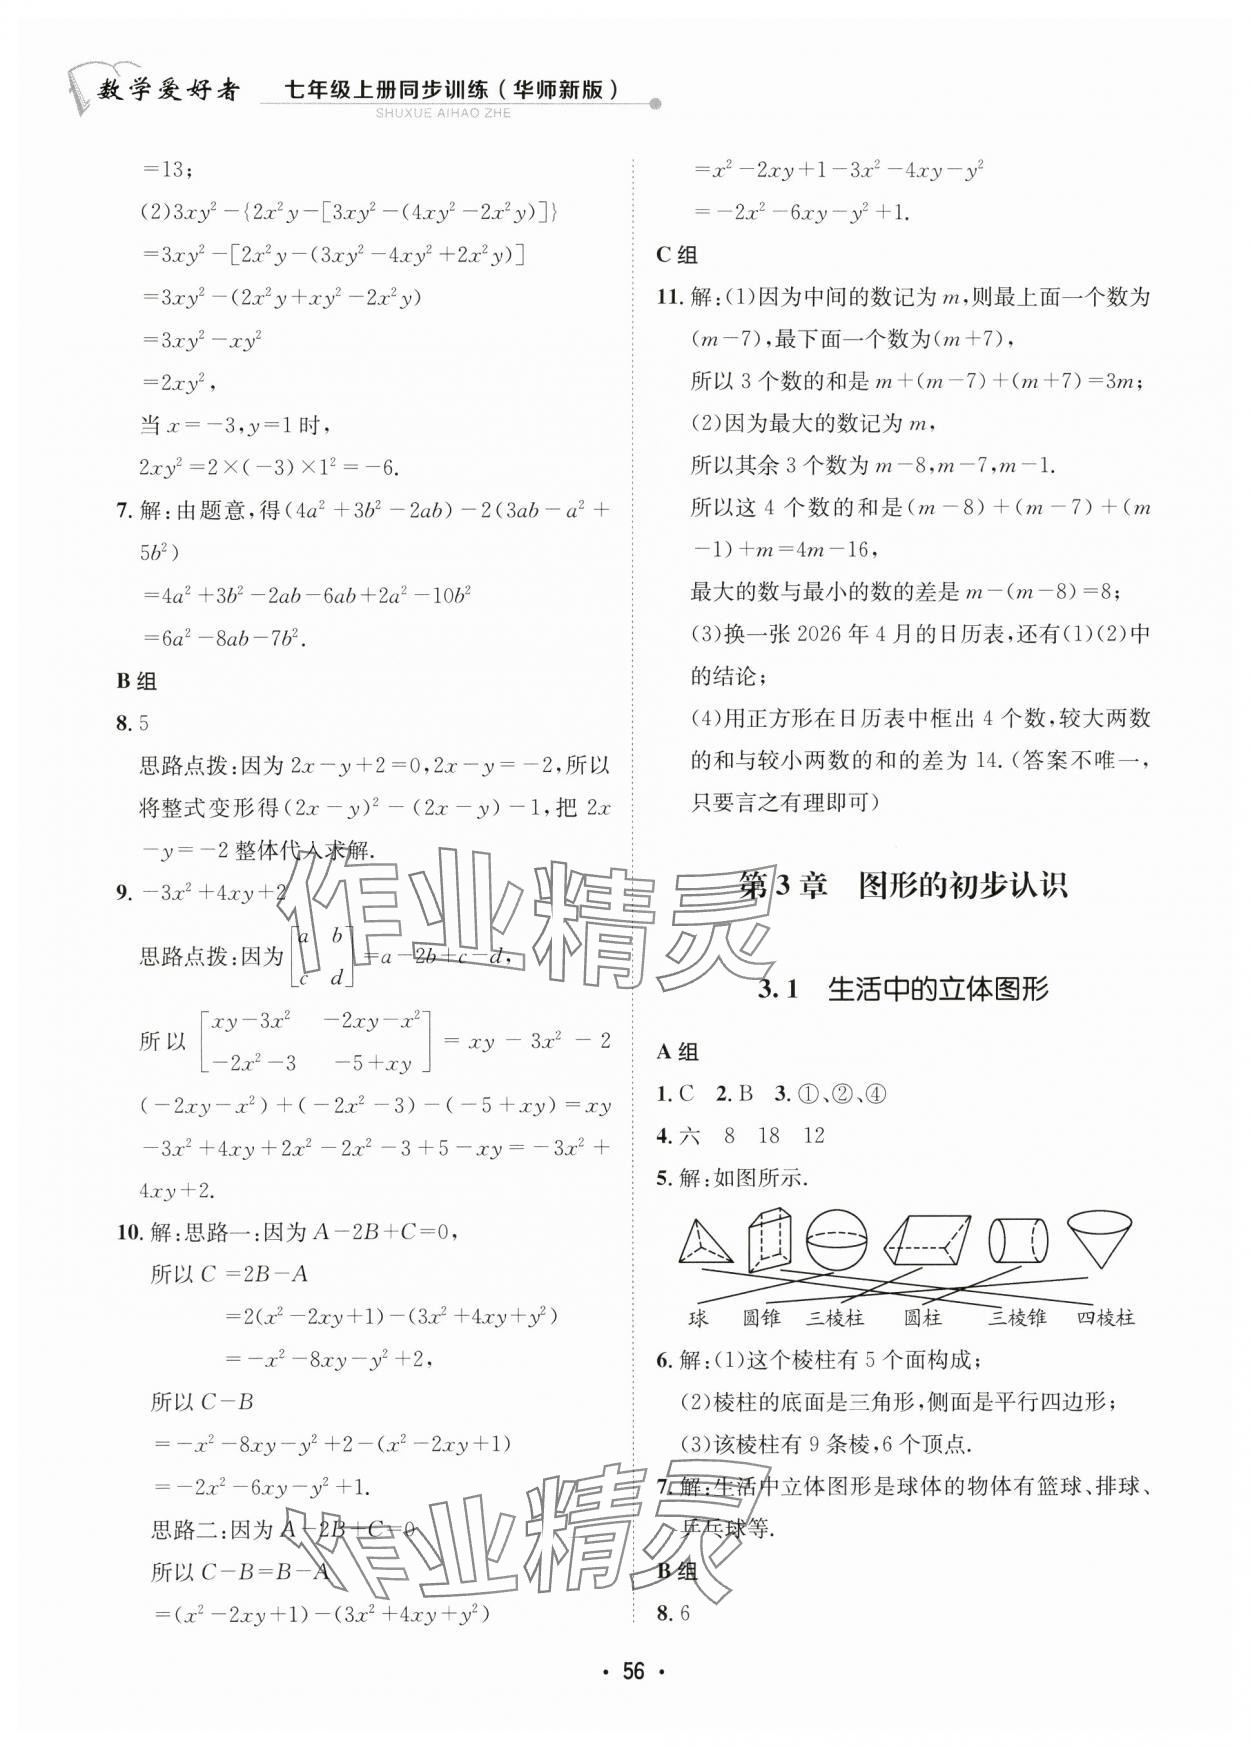 数学爱好者 七年级上册同步训练(华师新版)
SHUXUE AIHAO ZHE
=13;
(2)3xy²-{2x²y-[3xy²-(4xy²-2x²y)]}
=3xy²-[2x²y-(3xy²-4xy²+2x²y)]
=3xy²-(2x²y+xy²-2x²y)
=3xy²-xy²
=2xy²,
当x=-3,y=1时,
2xy²=2×(-3)×1²=-6.
7. 解:由题意,得(4a²+3b²-2ab)-2(3ab-a²+
5b²)
=4a²+3b²-2ab-6ab+2a²-10b²
=6a²-8ab-7b².
B组
8. 5
思路点拨:因为2x-y+2=0,2x-y=-2,所以
将整式变形得(2x-y)²-(2x-y)-1,把2x
-y=-2整体代入求解.
9. -3x²+4xy+2
思路点拨:因为[a b
c d]=a-2b+c-d,
所以[xy-3x² -2xy-x²
-2x²-3 -5+xy]=xy-3x²-2
(-2xy-x²)+(-2x²-3)-(-5+xy)=xy
-3x²+4xy+2x²-2x²-3+5-xy=-3x²+
4xy+2.
10. 解:思路一:因为A-2B+C=0,
所以C=2B-A
=2(x²-2xy+1)-(3x²+4xy+y²)
=-x²-8xy-y²+2,
所以C-B
=-x²-8xy-y²+2-(x²-2xy+1)
=-2x²-6xy-y²+1.
思路二:因为A-2B+C=0
所以C-B=B-A
=(x²-2xy+1)-(3x²+4xy+y²)
=x²-2xy+1-3x²-4xy-y²
=-2x²-6xy-y²+1.
C组
11. 解:(1)因为中间的数记为m,则最上面一个数为
(m-7),最下面一个数为(m+7),
所以3个数的和是m+(m-7)+(m+7)=3m;
(2)因为最大的数记为m,
所以其余3个数为m-8,m-7,m-1.
所以这4个数的和是(m-8)+(m-7)+(m
-1)+m=4m-16,
最大的数与最小的数的差是m-(m-8)=8;
(3)换一张2026年4月的日历表,还有(1)(2)中
的结论;
(4)用正方形在日历表中框出4个数,较大两数
的和与较小两数的和的差为14.(答案不唯一,
只要言之有理即可)
第3章 图形的初步认识
3.1 生活中的立体图形
A组
1. C 2. B 3. ①、②、④
4. 六 8 18 12
5. 解:如图所示.
球 圆锥 三棱柱 圆柱 三棱锥 四棱柱
6. 解:(1)这个棱柱有5个面构成;
(2)棱柱的底面是三角形,侧面是平行四边形;
(3)该棱柱有9条棱,6个顶点.
7. 解:生活中立体图形是球体的物体有篮球、排球、
乒乓球等.
B组
8. 6
作业精灵
作业精灵
· 56 ·